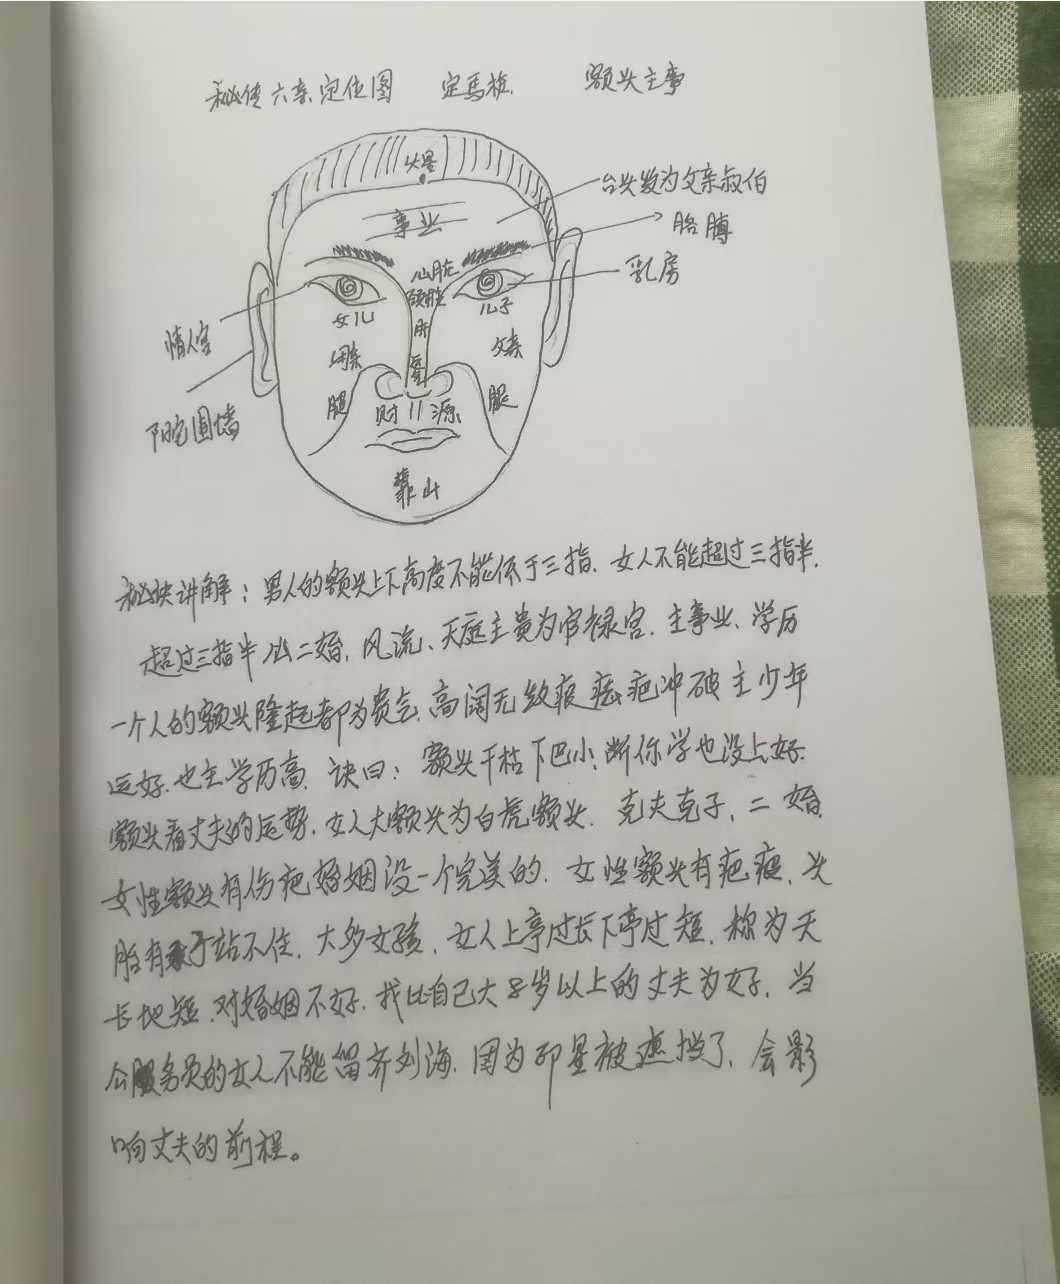 秘传六亲定位图 定馬桩 额头主事
火星
抬头纹为父亲叔伯
事业
胳膊
心脏
乳房
颈腔
女儿
儿子
肝
情人宫
母亲
父亲
腿
财 源
腿
阴宅围墙
靠山
秘诀讲解：男人的额头上下高度不能低于三指.女人不能超过三指半.
超过三指半必二婚,风流、天庭主贵为官禄宫.主事业、学历
一个人的额头隆起都为贵气、高阔无纹痕痣疤冲破主少年
运好.也主学历高.诀曰：额头干枯下巴小;断你学也没上好.
额头看丈夫的运势.女人大额头为白虎额头.克夫克子,二婚.
女性额头有伤疤婚姻没一个完美的.女性额头有疤痕、头
胎有子站不住.大多女孩.女人上亭过长下亭过短.称为天
长地短.对婚姻不好.找比自己大8岁以上的丈夫为好.当
公务员的女人不能留齐刘海.因为印星被遮挡了.会影
响丈夫的前程。